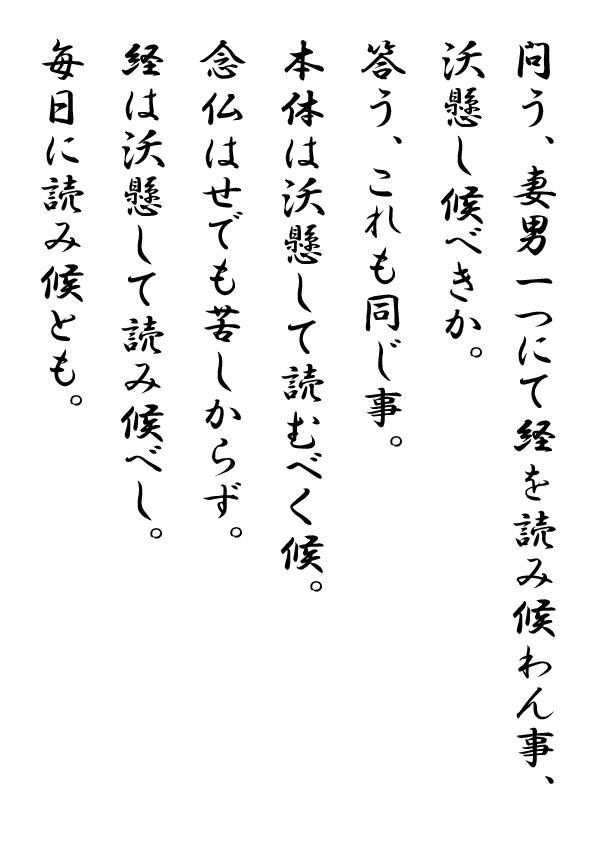 問う、妻男一つにて経を読み候わん事、
沃懸し候べきか。
答う、これも同じ事。
本体は沃懸して読むべく候。
念仏はせでも苦しからず。
経は沃懸して読み候べし。
毎日に読み候とも。